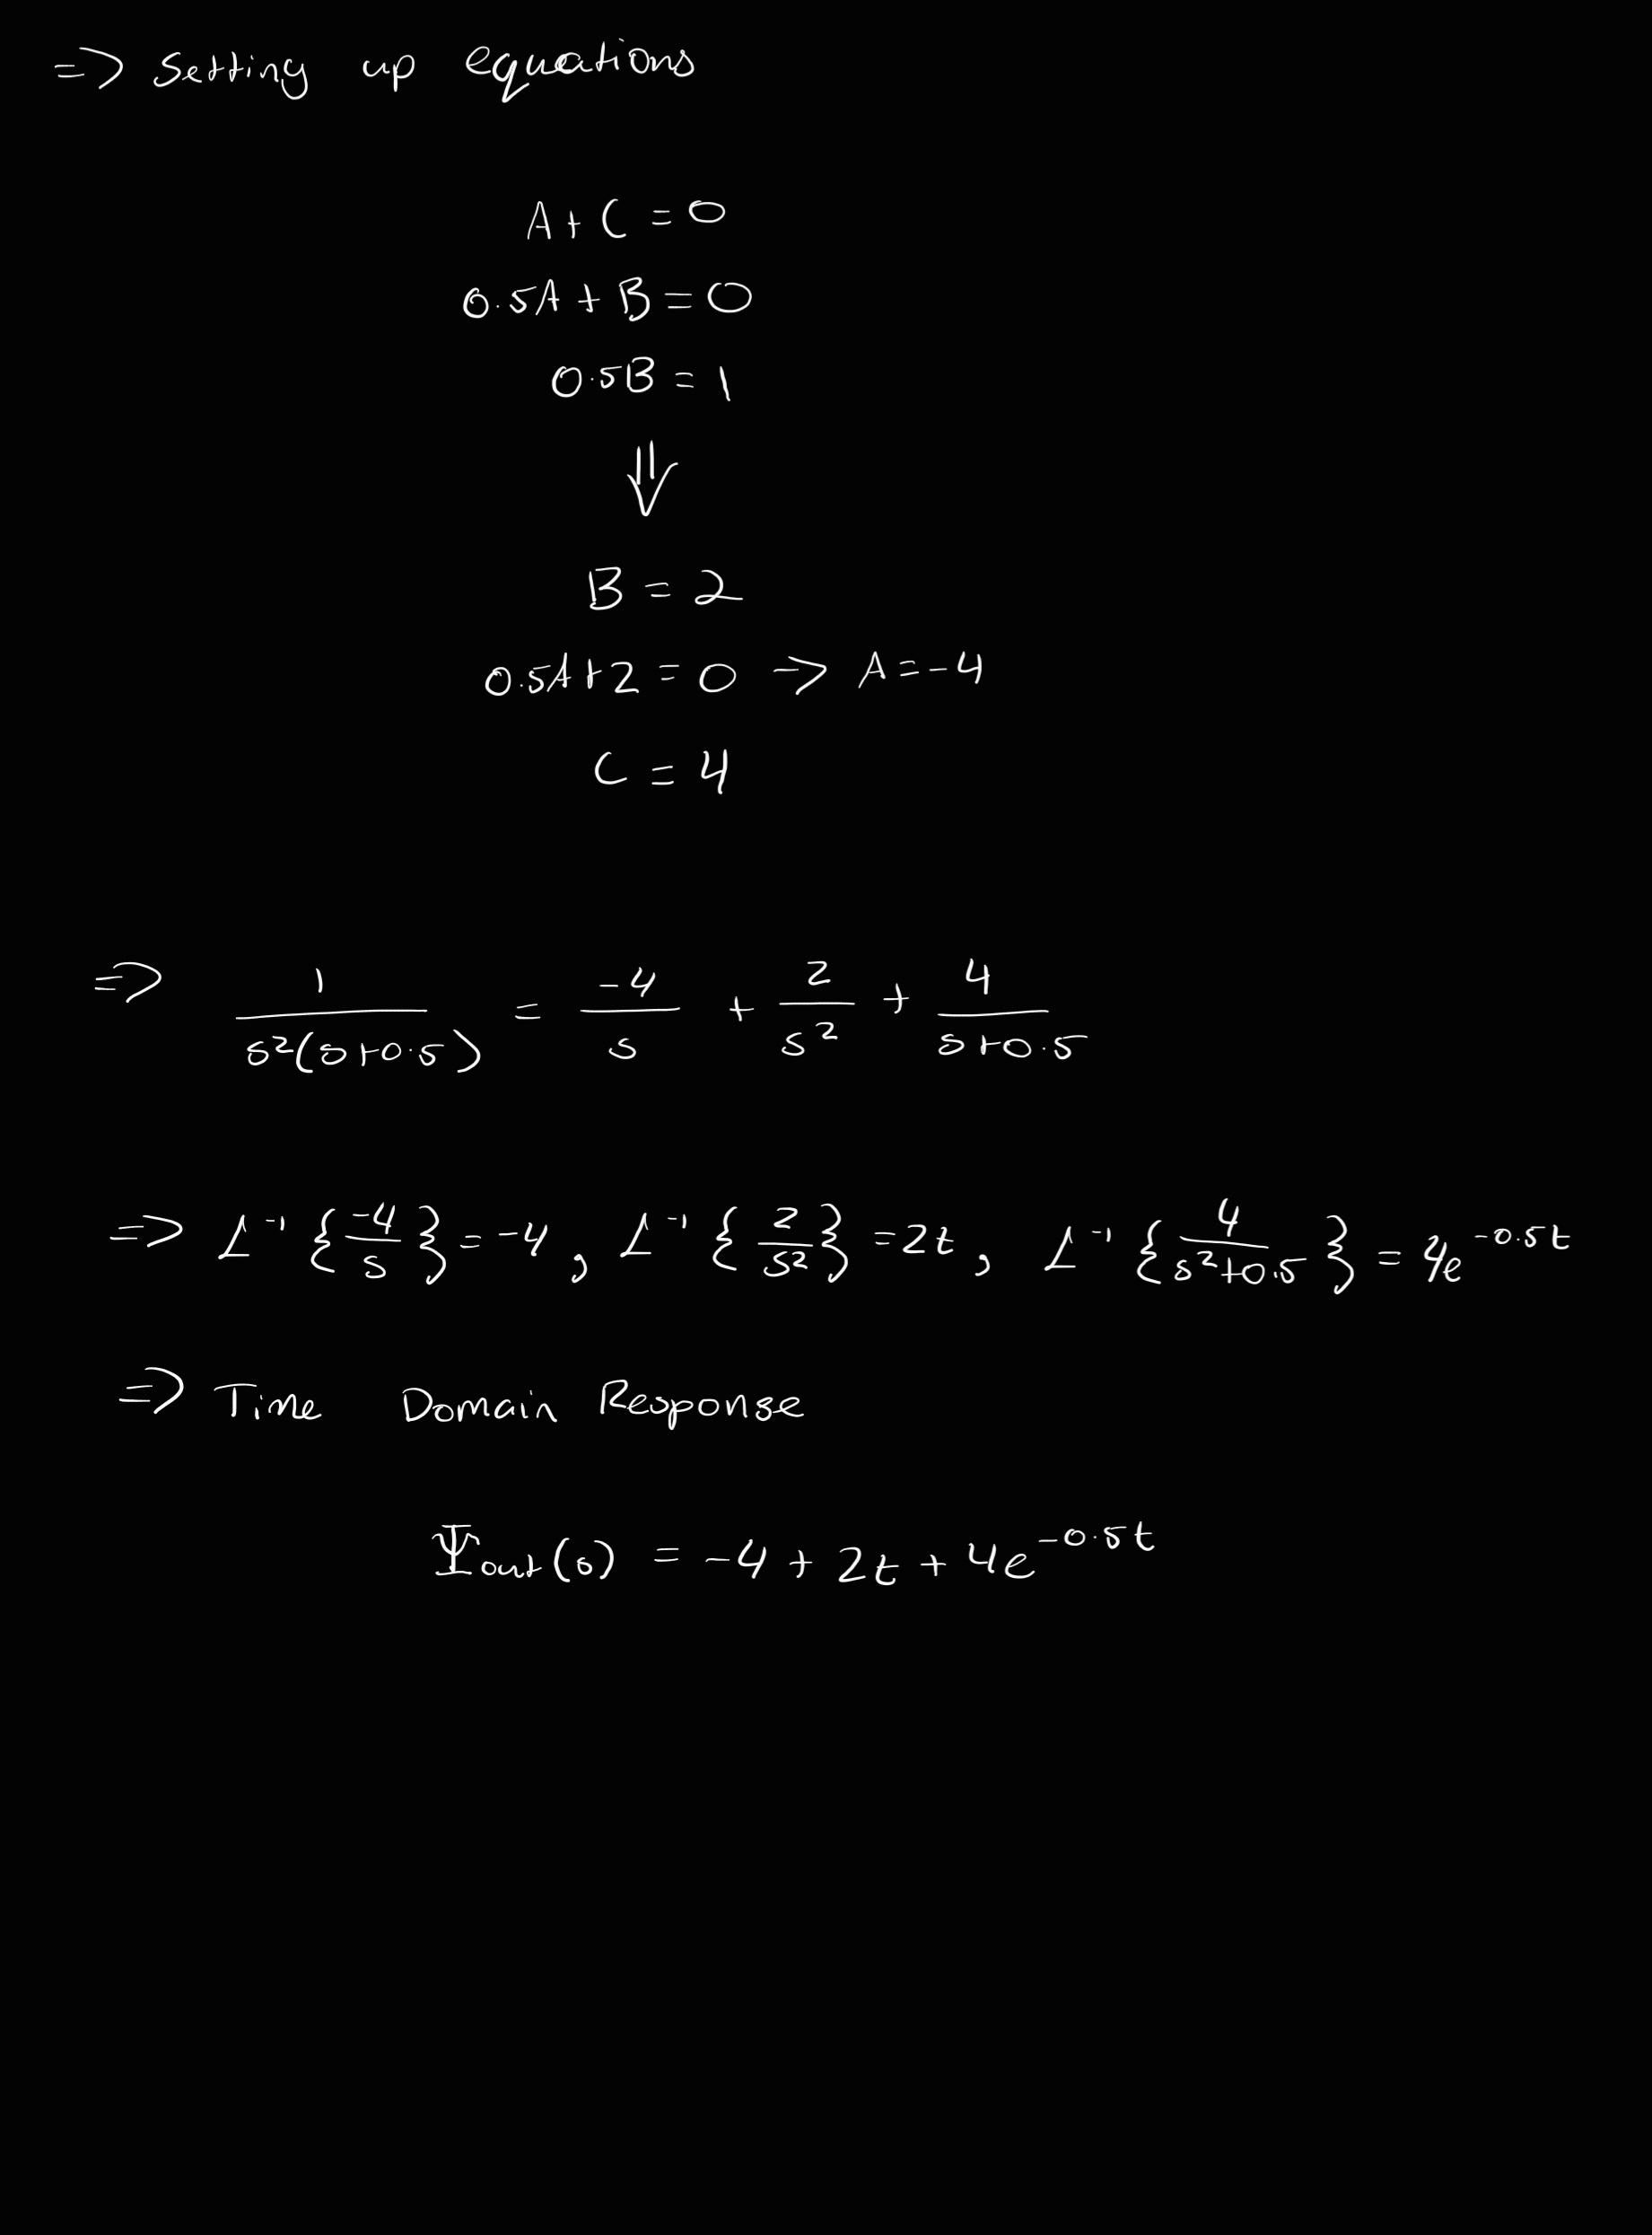 => Setting up equations
A + C = 0
0.5A + B = 0
0.5B = 1
⇓
B = 2
0.5A + 2 = 0 -> A = -4
C = 4
=> 1/(s²(s+0.5)) = -4/s + 2/s² + 4/(s+0.5)
=> L⁻¹{-4/s} = -4, L⁻¹{2/s²} = 2t, L⁻¹{4/(s²+0.5)} = 4e^(-0.5t)
=> Time Domain Response
Ψout(s) = -4 + 2t + 4e^(-0.5t)